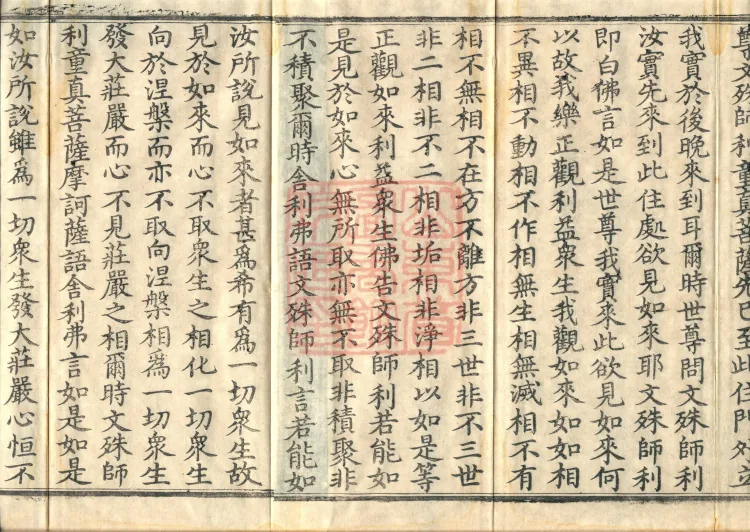 尊文殊師利童真菩薩先已至此住門外立
我實於後晚來到耳爾時世尊問文殊師利
汝實先來到此住處欲見如來耶文殊師利
即白佛言如是世尊我實來此欲見如來何
以故我樂正觀利益衆生我觀如來如如相
不異相不動相不作相無生相無滅相不有
相不無相不在方不離方非三世非不三世
非二相非不二相非垢相非淨相以如是等
正觀如來利益衆生佛告文殊師利若能如
是見於如來心無所取亦無不取非積聚非
不積聚爾時舍利弗語文殊師利言若能如
汝所說見如來者甚爲希有爲一切衆生故
見於如來而心不取衆生之相化一切衆生
向於涅槃而亦不取向涅槃相爲一切衆生
發大莊嚴而心不見莊嚴之相爾時文殊師
利童真菩薩摩訶薩語舍利弗言如是如是
如汝所說雖爲一切衆生發大莊嚴心恒不